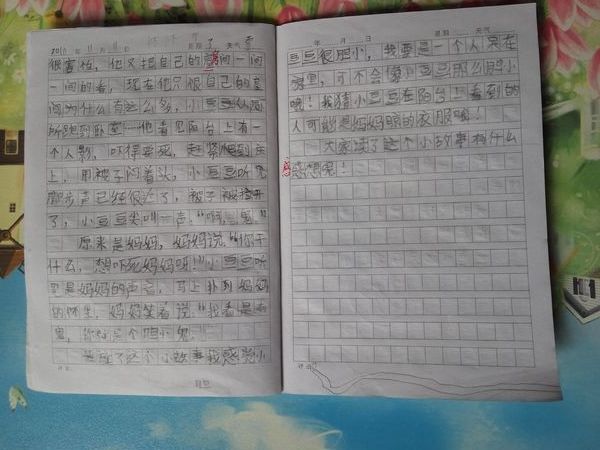 年 月 日 星期 天气
很害怕，他又把自己的房间一间
一间的看，现在他只恨自己的室
间为什么有这么多，小豆豆从厕
所跑到卧室……他看见阳台上有一
个人影，吓得要死，赶紧爬到床
上，用被子闷着头，小豆豆听见
脚步声已经很近了，被子被掀开
了，小豆豆尖叫一声：“啊，鬼。”
原来是妈妈，妈妈说：“你干
什么，想吓死妈妈呀！”小豆豆听
见是妈妈的声音，马上扑到妈妈
的怀里，妈妈笑着说：“我看是有
鬼，你就是个胆小鬼。”
读了这个小故事我感觉小
评语
年 月 日 星期 天气
豆豆很胆小，我要是一个人呆在
家里，可不会像小豆豆那么胆小
哦！我猜小豆豆在阳台上看到的
人可能是妈妈晾的衣服哦！
大家读了这个小故事有什么
感
感想呢！
评语